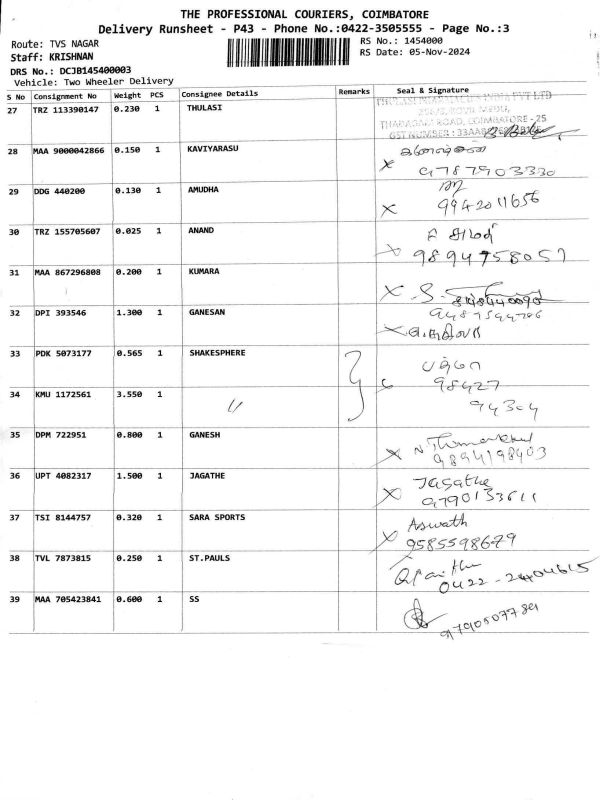 THE PROFESSIONAL COURIERS, COIMBATORE
Delivery Runsheet - P43 - Phone No.:0422-3505555 - Page No.:3
Route: TVS NAGAR
RS No.: 1454000
Staff: KRISHNAN
RS Date: 05-Nov-2024
DRS No.: DCJB145400003
Vehicle: Two Wheeler Delivery
S No Consignment No Weight PCS Consignee Details Remarks Seal & Signature
27 TRZ 113390147 0.230 1 THULASI
ROAD, COIMBATORE - 25
GST NUMBER : 33AA
28 MAA 9000042866 0.150 1 KAVIYARASU
9787903330
29 DDG 440200 0.130 1 AMUDHA
9942011656
30 TRZ 155705607 0.025 1 ANAND
9894758057
31 MAA 867296808 0.200 1 KUMARA
32 DPI 393546 1.300 1 GANESAN
33 PDK 5073177 0.565 1 SHAKESPHERE
98427
34 KMU 1172561 3.550 1 "
94304
35 DPM 722951 0.800 1 GANESH
9894198403
36 UPT 4082317 1.500 1 JAGATHE
Jagathe
9790133611
37 TSI 8144757 0.320 1 SARA SPORTS
Aswath
9585598679
38 TVL 7873815 0.250 1 ST.PAULS
0422-2404615
39 MAA 705423841 0.600 1 SS